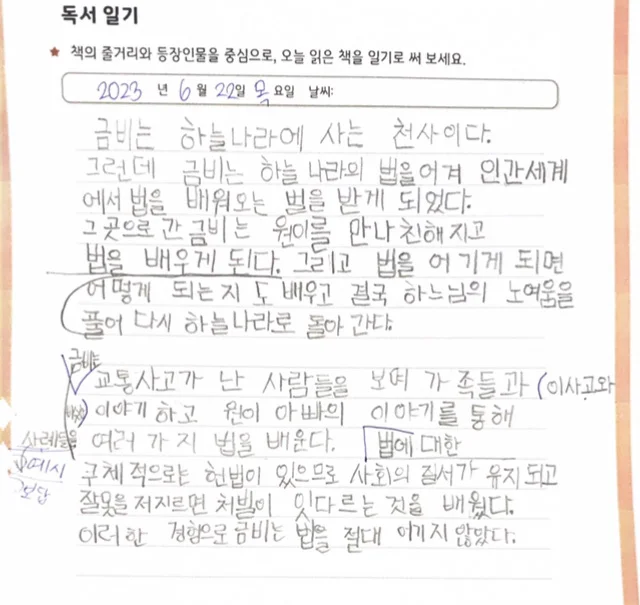 독서 일기
★ 책의 줄거리와 등장인물을 중심으로, 오늘 읽은 책을 일기로 써 보세요.
2023 년 6 월 22일 목 요일 날씨:
금비는 하늘나라에 사는 천사이다.
그런데 금비는 하늘 나라의 법을 어겨 인간세계
에서 법을 배워오는 벌을 받게 되었다.
그 곳으로 간 금비는 원이를 만나 친해지고
법을 배우게 된다. 그리고 법을 어기게 되면
어떻게 되는지 도 배우고 결국 하느님의 노여움을
풀어 다시 하늘나라로 돌아 간다.
금비는
교통사고가 난 사람들을 보며 가족들과 (이사고와
이야기 하고 원이 아빠의 이야기를 통해
사례들을 여러 가지 법을 배운다. 법에 대한
예시
구체적으로는 헌법이 있으므로 사회의 질서가 유지되고
잘못을 저지르면 처벌이 잇다르는 것을 배웠다.
이러한 경험으로 금비는 법을 절대 어기지 않았다.